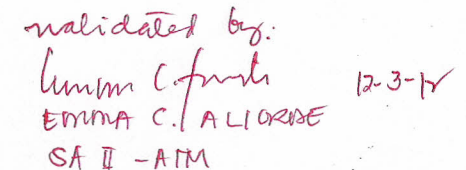 validated by:
12-3-12
EMMA C. ALIORDE
SA II - ATM